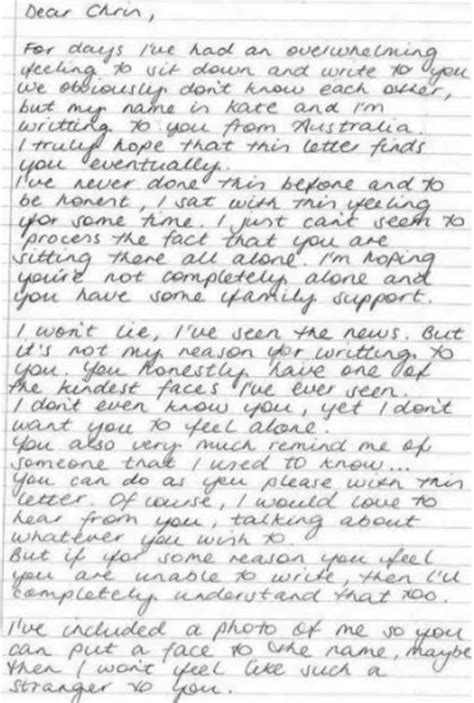 Dear Chris,
For days I've had an overwhelming
feeling to sit down and write to you
we obviously don't know each other,
but my name is Kate and I'm
writting to you from Australia.
I truly hope that this letter finds
you eventually.
I've never done this before and to
be honest, I sat with this feeling
for some time. I just can't seem to
process the fact that you are
sitting there all alone. I'm hoping
you're not completely alone and
you have some family support.
I won't lie, I've seen the news. But
it's not my reason for writting to
you. You honestly have one of
the kindest faces I've ever seen.
I don't even know you, yet I don't
want you to feel alone.
You also very much remind me of
someone that I used to know...
You can do as you please with this
letter. Of course, I would love to
hear from you, talking about
whatever you wish to.
But if for some reason you feel
you are unable to write, then I'll
completely understand that too.
I've included a photo of me so you
can put a face to the name, maybe
then I won't feel like such a
stranger to you.